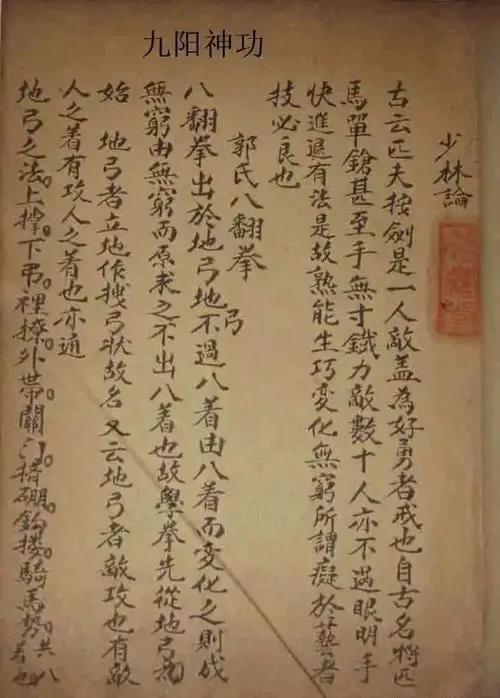 九阳神功
少林論
古云匹夫按劍是一人敵蓋為好勇者戒也自古名將匹
馬單鎗甚至手無寸鐵力敵數十人亦不過眼明手
快進退有法是故熟能生巧變化無窮所謂癡於藝者
技必良也
郭氏八翻拳
八翻拳出於地弓地弓不過八着由八着而變化之則成
無窮由無窮而原求之不出八着也故學拳先從地弓為
始 地弓者立地作拽弓狀故名 又云地弓者敵攻也有敵
人之着有攻人之着也亦通
地弓之法上撑下弔裡撩外帶關門揹硼鈎摟騎馬勢共八着也